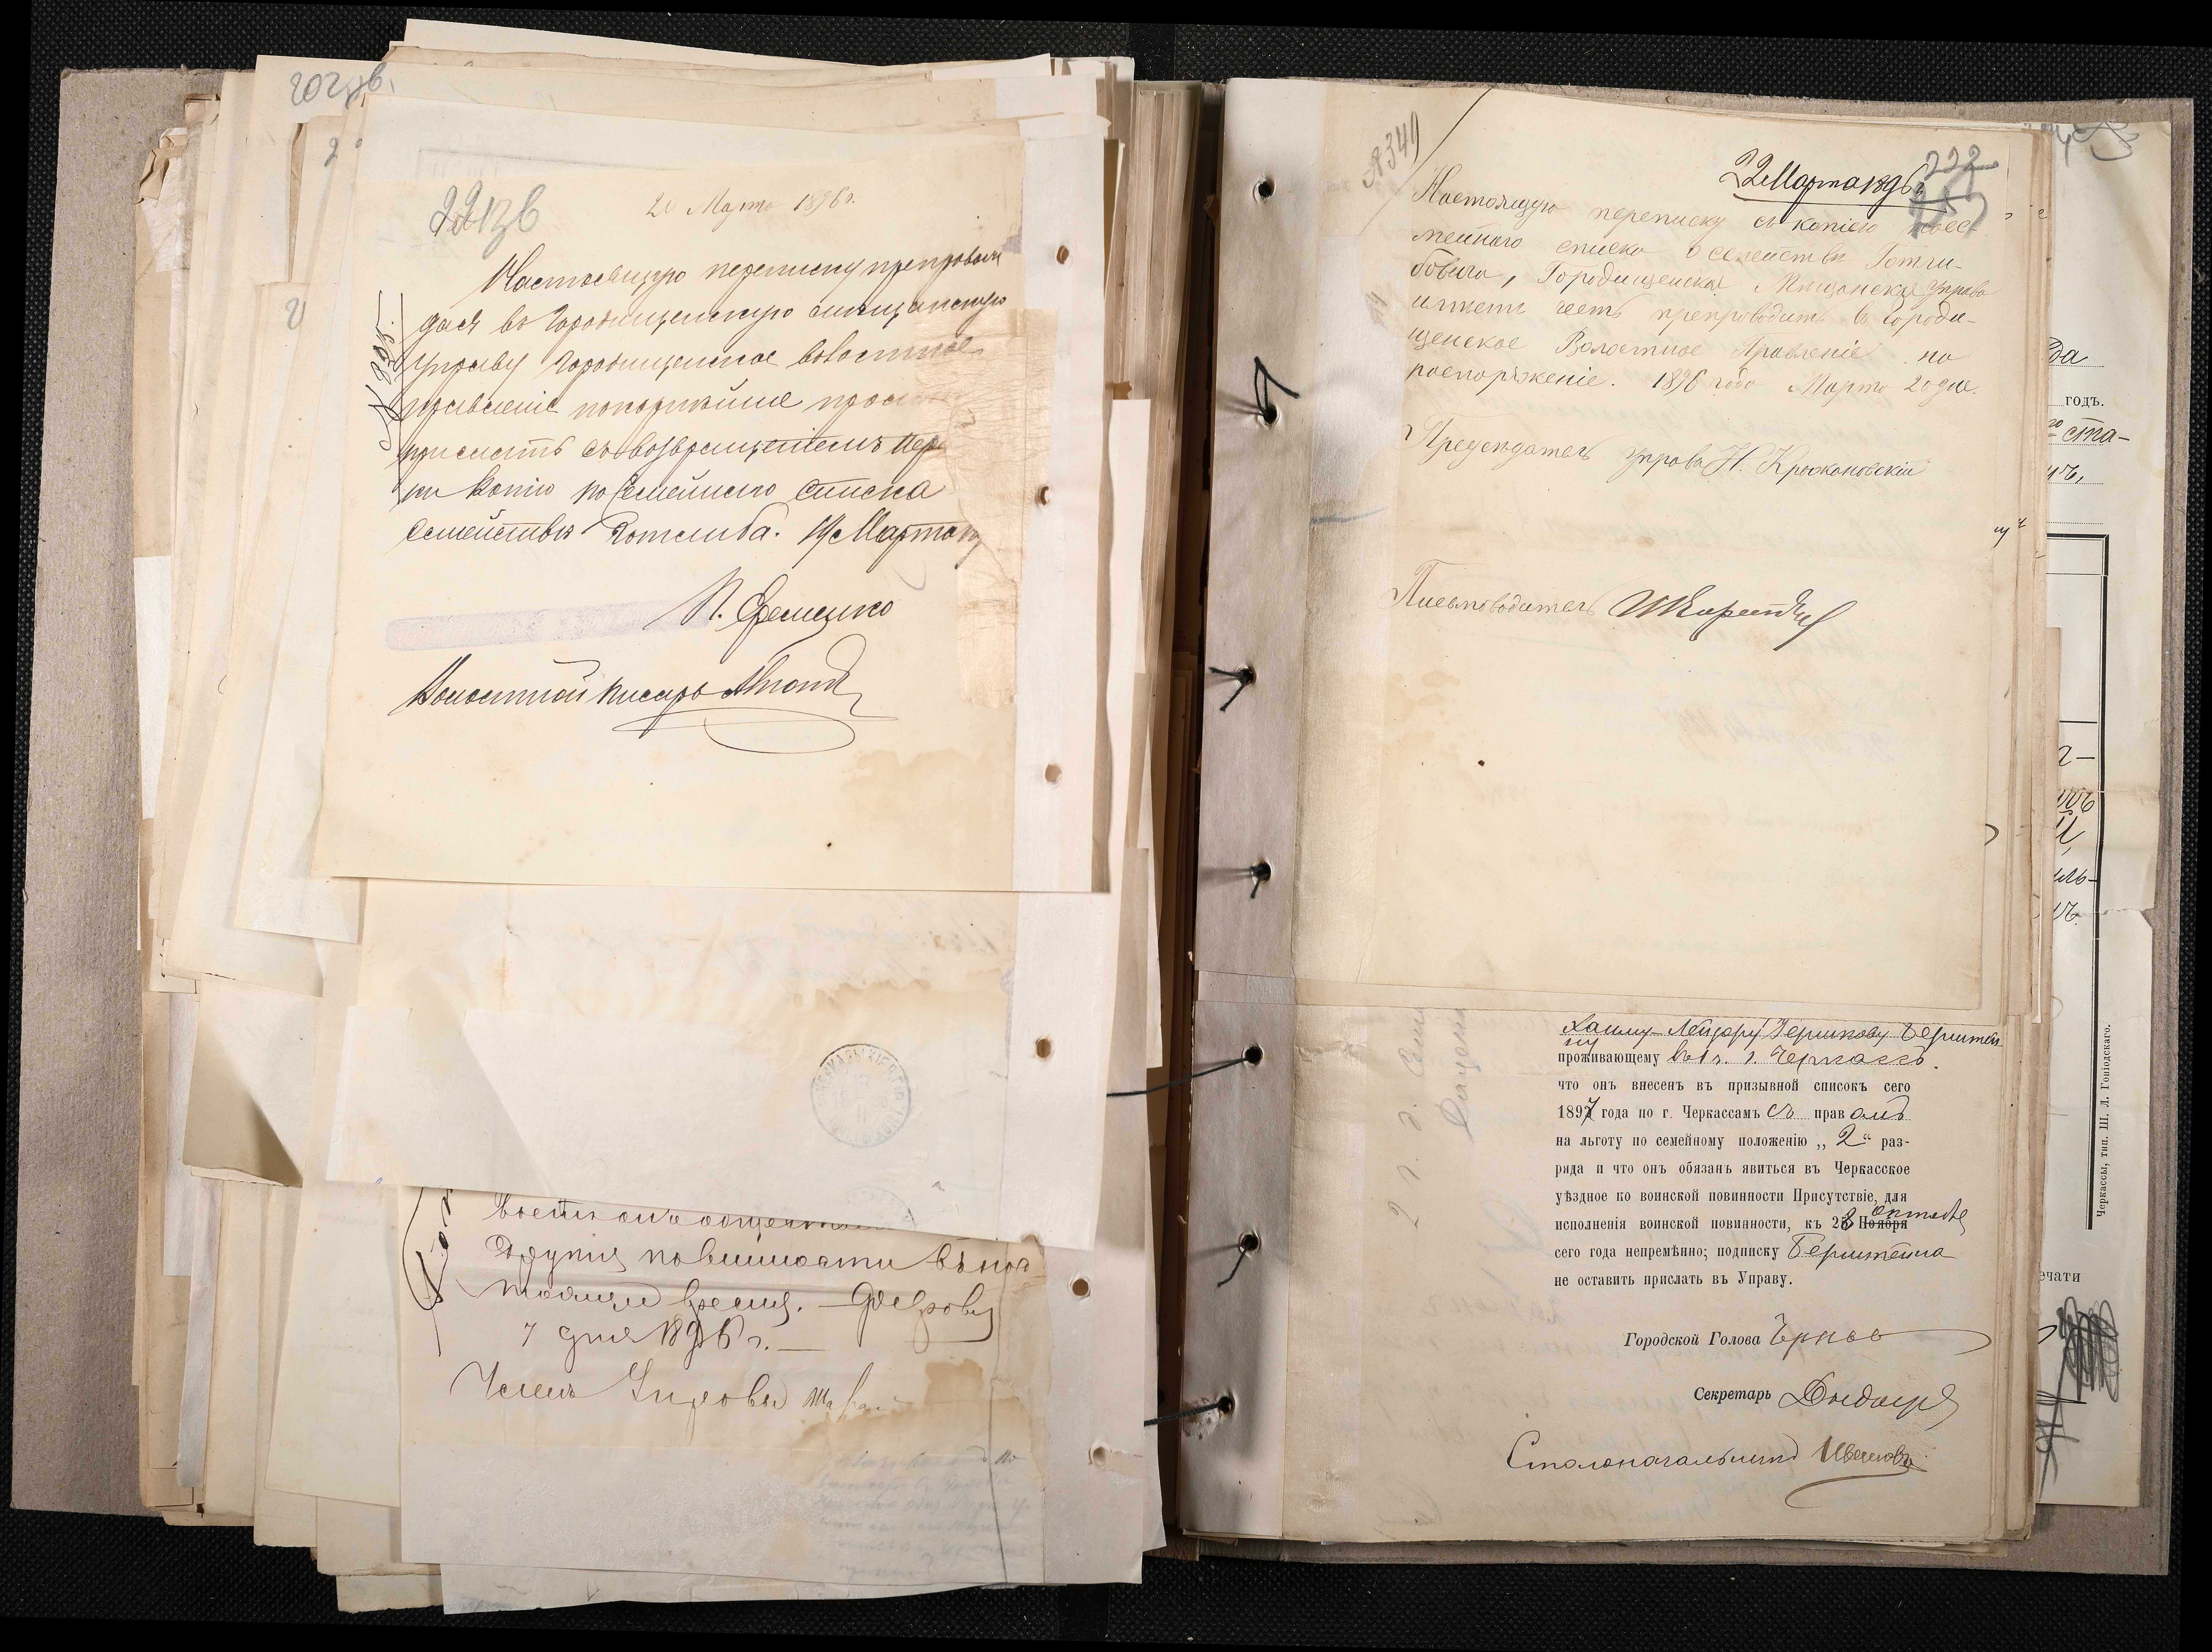 202 зв.
221 зв
20 Марта 1896 г.
Настоящую переписку препровож
дая въ Городищенскую мещанскую
управу Городищенское волостное
правленіе покорнѣйше проси
прислать съ возвращеніемъ пер
ки копію посемейнаго списка
семейства Готлиба. 19 Марта
№ 395.
П. Еременко
Волостной писарь
другія повинности въ нас
тоящее время. — Февраля
7 дня 1896 г. —
Членъ Управы
№ 349
22 Марта 1896 г.
222
Настоящую переписку съ копіею посе-
мейнаго списка о семействѣ Готли-
бовича, Городищенская Мѣщанская Управа
имѣетъ честь препроводить въ Городи-
щенское Волостное Правленіе на
распоряженіе. 1896 года Марта 20 дня.
Предсѣдатель управы Н. Крыжановскій
Письмоводитель
Хаиму-Лейзеру Гершкову Берштей
ну
проживающему въ г. Черкассъ.
что онъ внесенъ въ призывной списокъ сего
1897 года по г. Черкассамъ съ правомъ
на льготу по семейному положенію „2“ раз-
ряда и что онъ обязанъ явиться въ Черкасское
уѣздное по воинской повинности Присутствіе, для
исполненія воинской повинности, къ 28 Ноября Октября
сего года непремѣнно; подписку Берштейна
не оставить прислать въ Управу.
Городской Голова
Секретарь
Столоначальникъ Ивановъ
да
годъ.
го ста-
ечати
Черкассы, тип. Ш. Л. Гоніодскаго.